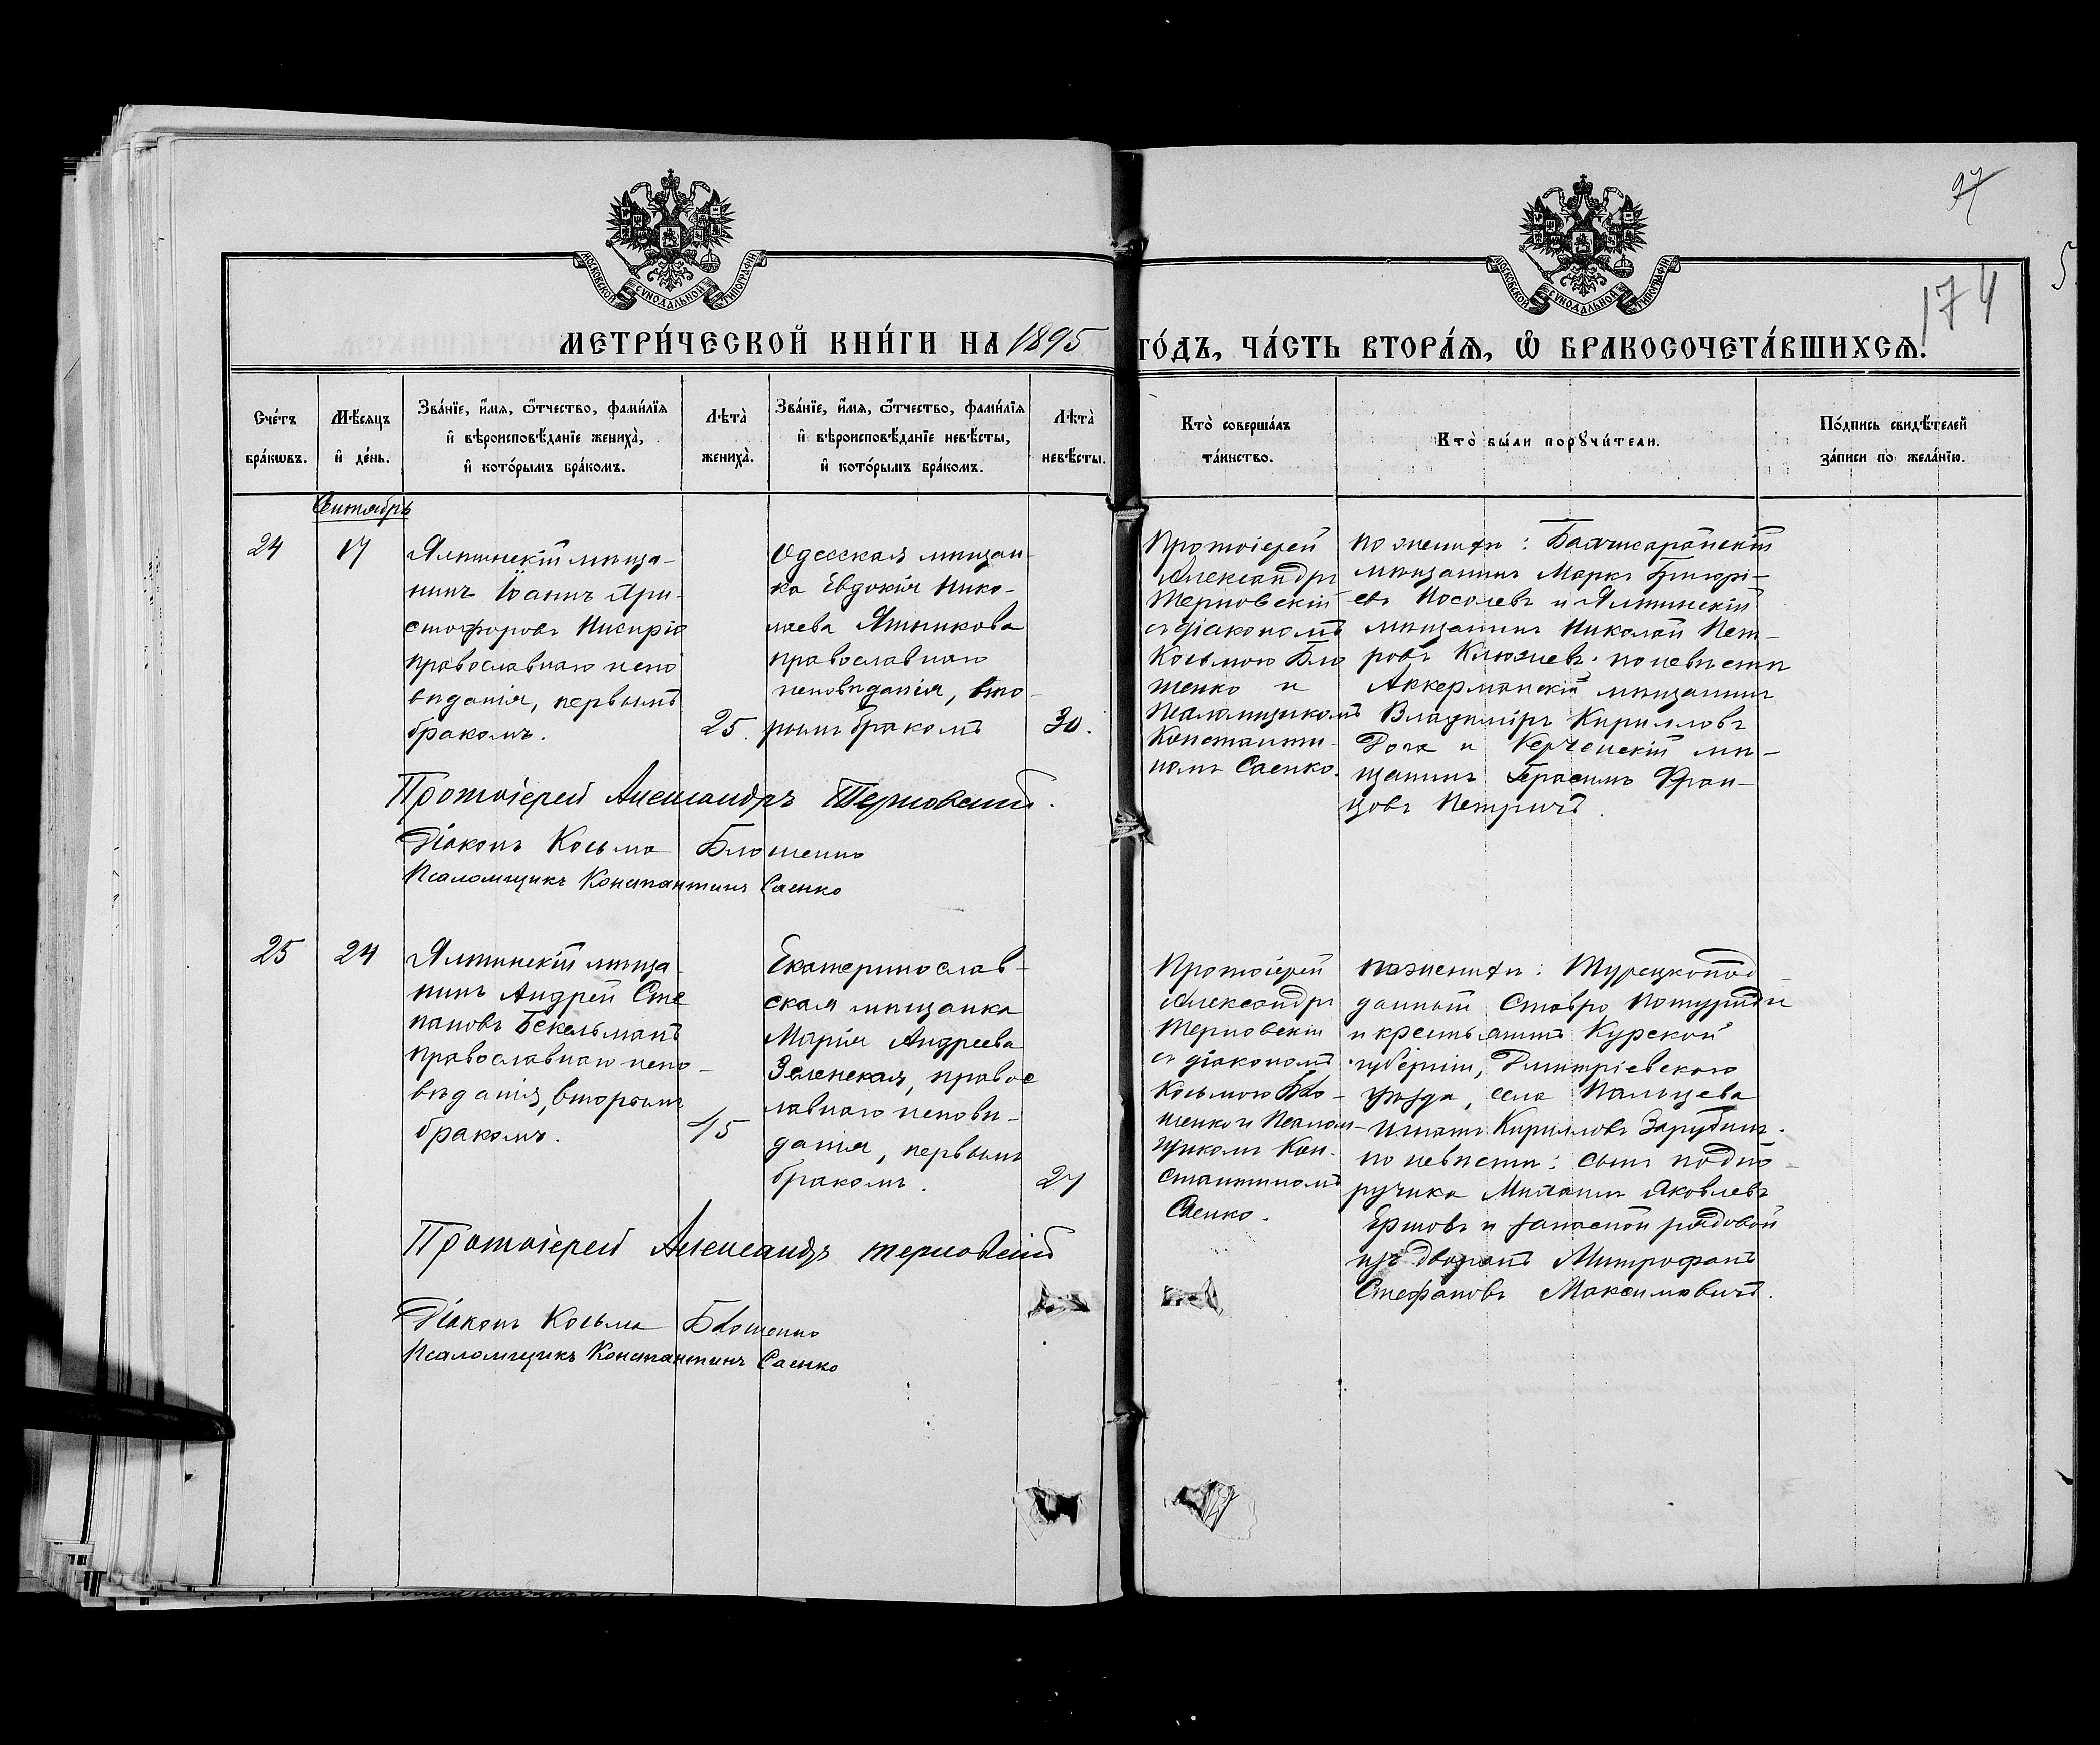 97
174
5
МОСКОВСКОЙ СѴНОДАЛЬНОЙ ТИПОГРАФІИ
МОСКОВСКОЙ СѴНОДАЛЬНОЙ ТИПОГРАФІИ
МЕТРИ́ЧЕСКОЙ КНИ́ГИ НА 1895 ГО́ДЪ, ЧА́СТЬ ВТОРА́Ѧ, Ѽ БРАКОСОЧЕТА́ВШИХСѦ.
Сче́тъ
бра́кѡвъ.
Мѣ́сѧцъ
и҆ де́нь.
Зва́нїе, и҆́мѧ, ѻ҆́тчество, фами́лїѧ
и҆ вѣроисповѣ́данїе жениха̀,
и҆ кото́рымъ бра́комъ.
Лѣта̀
жениха̀.
Зва́нїе, и҆́мѧ, ѻ҆́тчество, фами́лїѧ
и҆ вѣроисповѣ́данїе невѣ́сты,
и҆ кото́рымъ бра́комъ.
Лѣта̀
невѣ́сты.
Кто̀ соверша́лъ
та́инство.
Кто̀ бы́ли порꙋчи́тели.
По́дпись свидѣ́телей
за́писи по жела́нїю.
Сентябрь
24
17
Ялтинскій мѣща-
нинъ Іоаннъ Хри-
стофоровъ
православнаго испо
вѣданія, первымъ
бракомъ.
25.
Одесская мѣщан-
ка Евдокія Нико-
лаева
православнаго
исповѣданія, вто-
рымъ бракомъ
30.
Протоіерей
Александръ
Терновскій
съ діакономъ
Косьмою Бло
шенко и
псаломщикомъ
Константи-
номъ Саенко.
по женихѣ: Бахчисарайскій
мѣщанинъ Маркъ Григорі-
евъ Косолевъ и Ялтинскій
мѣщанинъ Николай Пет-
ровъ Клюжевъ. по невѣстѣ
Аккерманскій мѣщанинъ
Владиміръ Кирилловъ
Рога и Керченскій мѣ-
щанинъ Герасимъ Фран-
цовъ Петричъ.
Протоіерей Александръ Терновскій.
Діаконъ Косьма Блошенко
Псаломщикъ Константинъ Саенко
25
24
Ялтинскій мѣща-
нинъ Андрей Сте
пановъ Бекельманъ
православнаго испо-
вѣданія, вторымъ
бракомъ.
45
Екатеринослав-
ская мѣщанка
Марія Андреева
Зеленская, правос
лавнаго исповѣ-
данія, первымъ
бракомъ.
27
Протоіерей
Александръ
Терновскій
съ діакономъ
Косьмою Бло-
шенко и псалом-
щикомъ Кон-
стантиномъ
Саенко.
по женихѣ: Турецкопод-
данный Ставро
и крестьянинъ Курской
губерніи, Дмитріевского
уѣзда, села Пальцева
Игнатъ Кирилловъ Зарубинъ.
по невѣстѣ: сынъ подпо-
ручика Михаилъ Яковлевъ
Ершовъ и запасной рядовой
изъ дворянъ Митрофанъ
Стефановъ Максимовичъ.
Протоіерей Александръ Терновскій
Діаконъ Косьма Блошенко
Псаломщикъ Константинъ Саенко